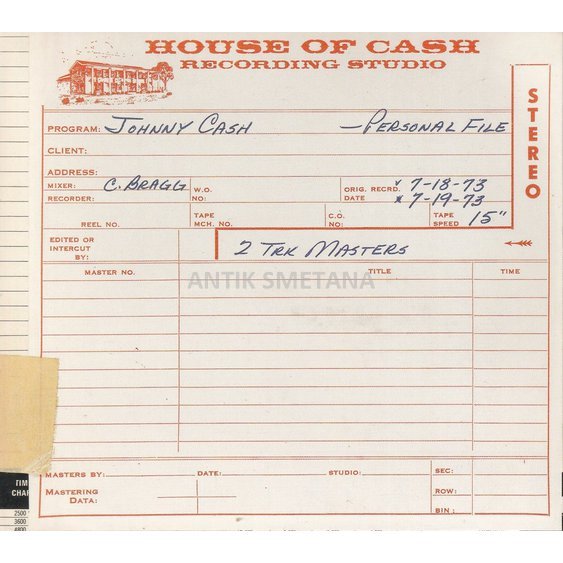 HOUSE OF CASH
RECORDING STUDIO
STEREO
PROGRAM: JOHNNY CASH — PERSONAL FILE
CLIENT:
ADDRESS:
MIXER: C. BRAGG W.O. ORIG. RECRD. x 7-18-73
RECORDER: NO: DATE x 7-19-73
REEL NO. TAPE MCH. NO. C.O. NO: TAPE SPEED 15"
EDITED OR INTERCUT BY: 2 TRK MASTERS
MASTER NO. TITLE TIME
ANTIK SMETANA
MASTERS BY: DATE: STUDIO: SEC:
MASTERING DATA: ROW:
BIN:
TIM
CHAR
2500
3600
4800